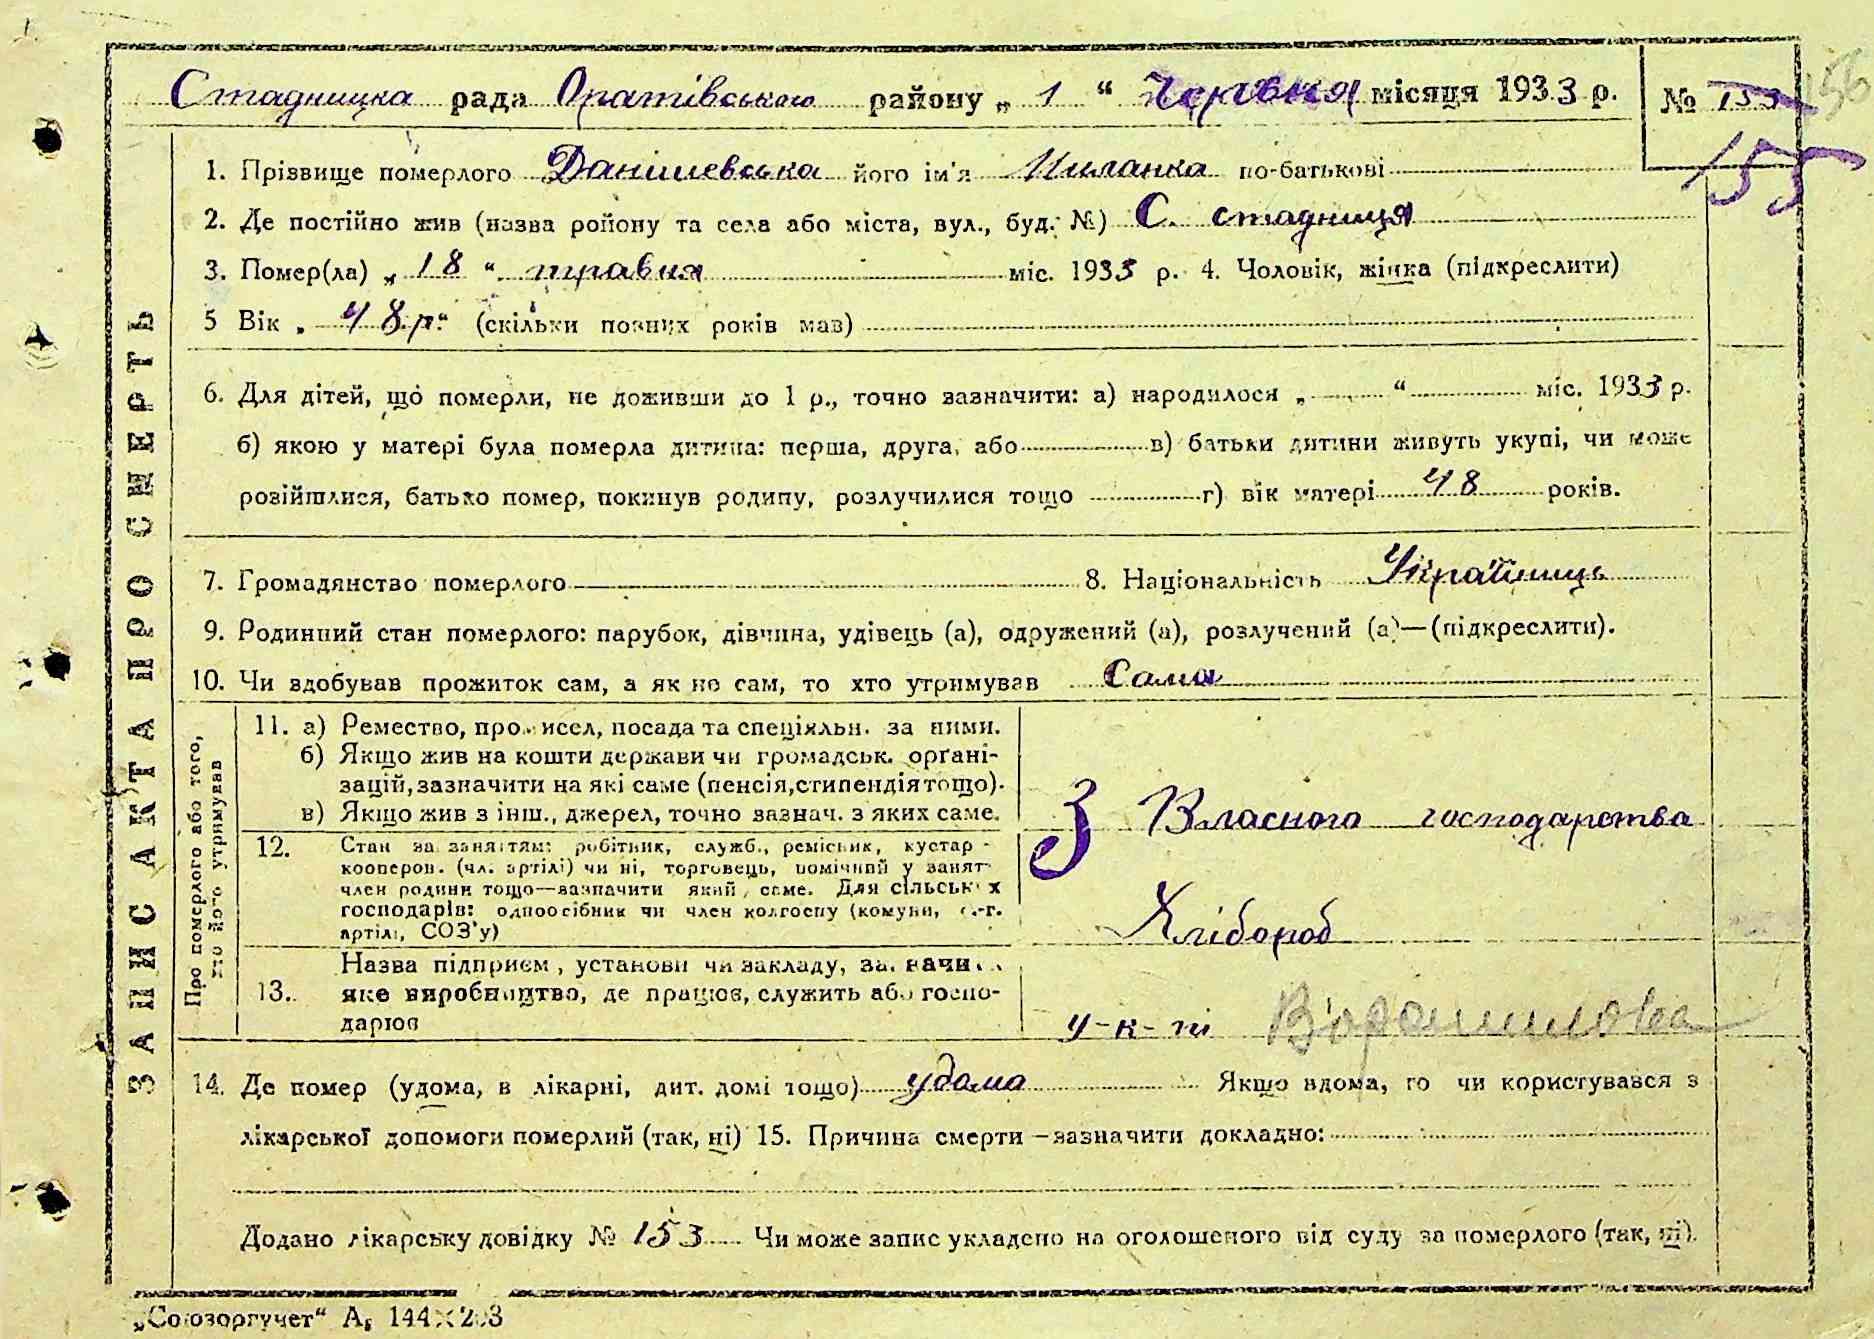 Стадницка рада Оратівського району „ 1 “ Червня місяця 1933 р. № 153 156
155
1. Прізвище померлого Данішевська його ім'я Килапка по-батькові
2. Де постійно жив (назва ройону та села або міста, вул., буд. №) С. стадниця
3. Помер(ла) „ 18 “ травня міс. 1933 р. 4. Чоловік, жінка (підкреслити)
5 Вік „ 48 р.“ (скільки повних років мав)
6. Для дітей, що померли, не доживши до 1 р., точно зазначити: а) народилося „ “ міс. 1933 р.
б) якою у матері була померла дитина: перша, друга, або в) батьки дитини живуть укупі, чи може
розійшлися, батько помер, покинув родину, розлучилися тощо г) вік матері 48 років.
7. Громадянство померлого 8. Національність Українць
9. Родинний стан померлого: парубок, дівчина, удівець (а), одружений (а), розлучений (а)—(підкреслити).
10. Чи здобував прожиток сам, а як не сам, то хто утримував Сама
ЗАПИС АКТА ПРО СМЕРТЬ
Про померлого або того, хто його утримував
11. а) Ремество, промисел, посада та спеціяльн. за ними.
б) Якщо жив на кошти держави чи громадськ. органі-
зацій, зазначити на які саме (пенсія, стипендія тощо).
в) Якщо жив з інш., джерел, точно зазнач. з яких саме.
З Власного господарства
12. Стан за заняттям: робітник, служб., ремісник, кустар -
кооперов. (чл. артілі) чи ні, торговець, помічний у занят
член родини тощо—зазначити який саме. Для сільських
господарів: одноосібник чи член колгоспу (комуни, с.-г.
артілі, СОЗ'у)
Хлібороб
13. Назва підприєм, установи чи закладу, зазначи
яке виробництво, де працюв, служить або госпо-
дарюв
у-к-пі Ворошилова
14. Де помер (удома, в лікарні, дит. домі тощо) удома Якщо вдома, то чи користувався з
лікарської допомоги померлий (так, ні) 15. Причина смерти—зазначити докладно:
Додано лікарську довідку № 153 Чи може запис укладено на оголошеного від суду за померлого (так, ні).
„Союзоргучет“ А₅ 144×203